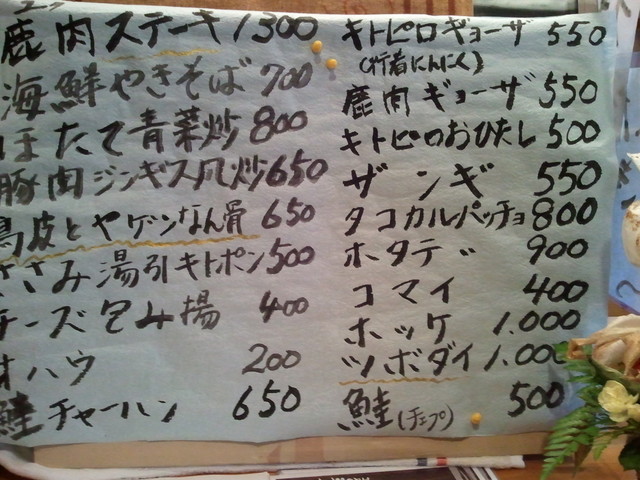 鹿肉ステーキ 1300
海鮮やきそば 700
ほたて青菜炒 800
豚肉ジンギス風炒 650
鳥皮とヤゲンなん骨 650
ささみ湯引キトポン 500
チーズ包み揚 400
オハウ 200
鮭チャーハン 650
キトピロギョーザ 550
(行者にんにく)
鹿肉ギョーザ 550
キトピロおひたし 500
ザンギ 550
タコカルパッチョ 800
ホタテ 900
コマイ 400
ホッケ 1.000
ツボダイ 1.000
鮭(チェプ) 500